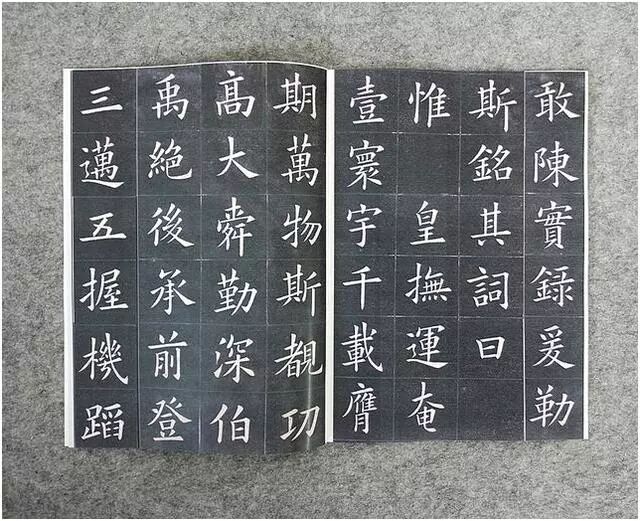 敢陳實録爰勒
斯銘其詞曰
惟皇撫運奄
壹寰宇千載膺
期萬物斯覩功
高大舜勤深伯
禹絶後承前登
三邁五握機蹈